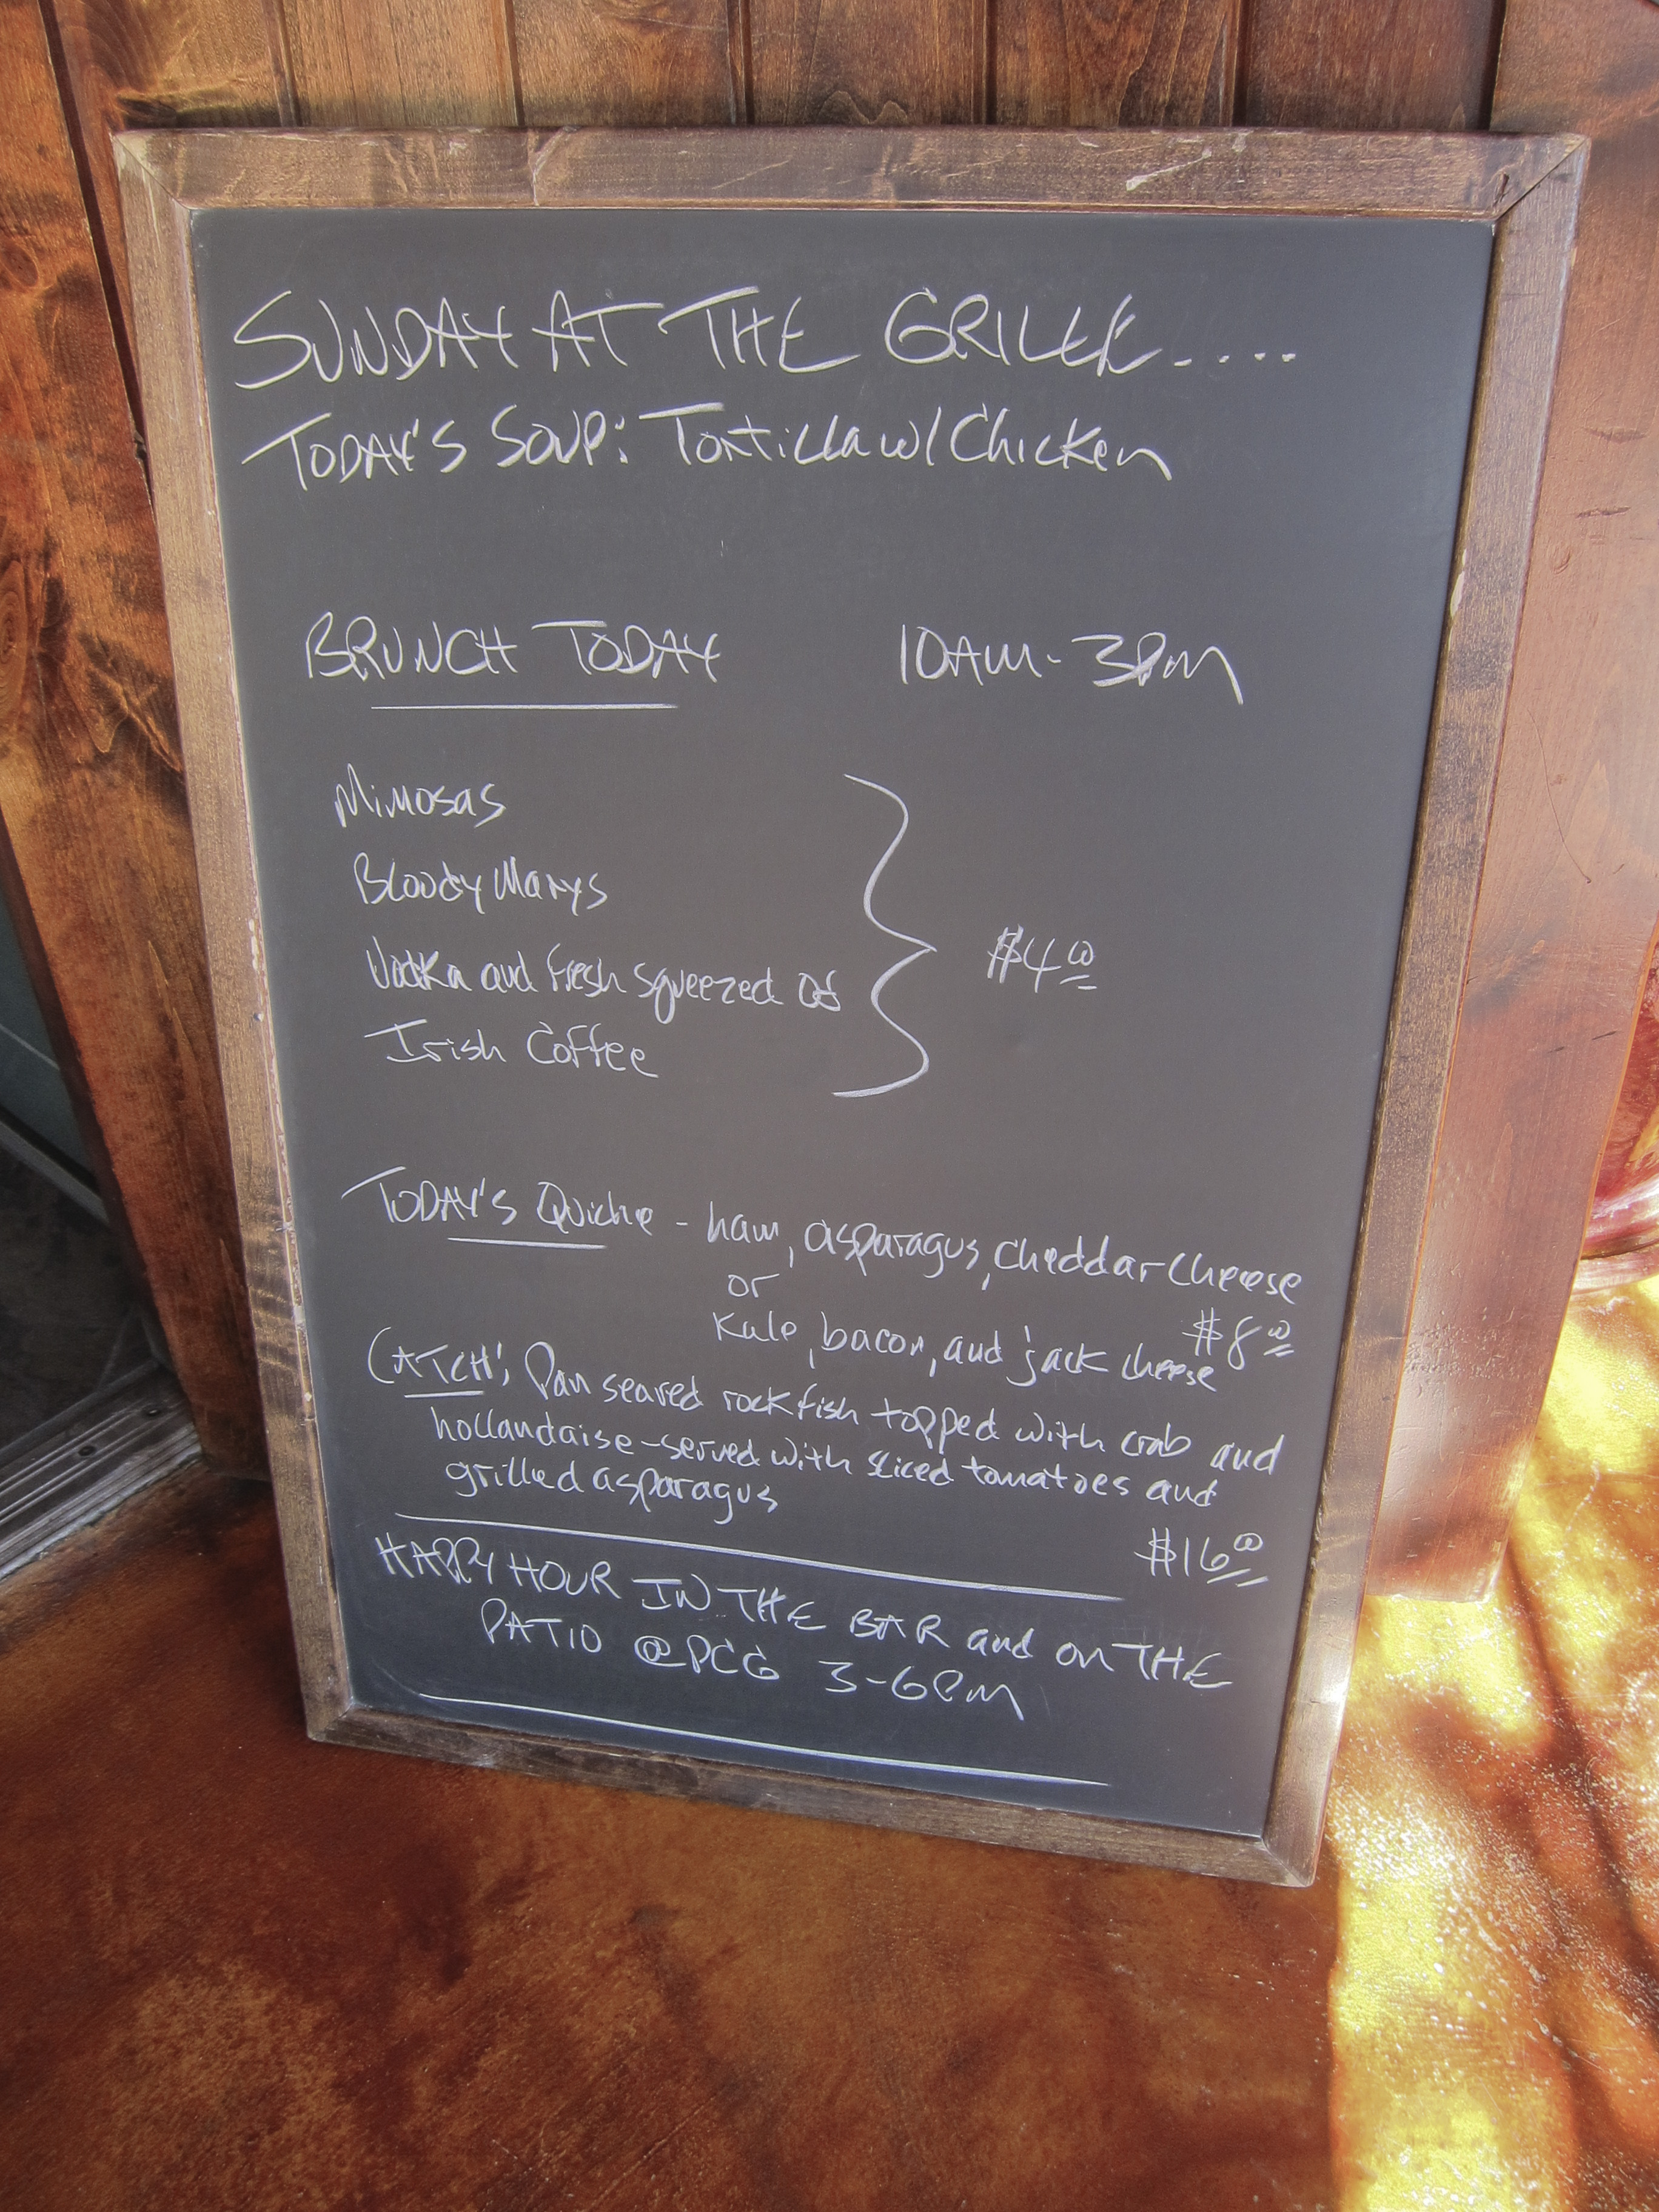 SUNDAY AT THE GRILLE....
TODAY'S SOUP: Tortilla w/ Chicken
BRUNCH TODAY 10AM-3PM
Mimosas
Bloody Marys
Vodka and fresh squeezed OJ
Irish Coffee
$4.00
TODAY'S Quiche - ham, asparagus, cheddar cheese
or
Kale, bacon, and jack cheese $8.00
CATCH; Pan seared rockfish topped with crab and
hollandaise - served with sliced tomatoes and
grilled asparagus
$16.00
HAPPY HOUR IN THE BAR and on THE
PATIO @PCG 3-6PM